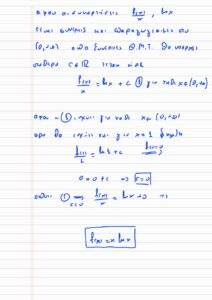 αφου οι συναρτησεις f(x)/x , lnx
ειναι συνεχεις και παραγωγισιμες στο
(0,+∞) απο Συνεπειες Θ.Μ.Τ. θα υπαρχει
σταθερα c∈ℝ τετοια ωστε
f(x)/x = lnx + c ① για καθε x∈(0,+∞)
αφου η ① ισχυει για καθε x∈(0,+∞)
αρα θα ισχυει και για x=1
f(1)/1 = ln1 + c f(1)=0
0 = 0 + c ⇒ c=0
① ⇒ c=0 f(x)/x = lnx + 0 ⇒
f(x) = x lnx